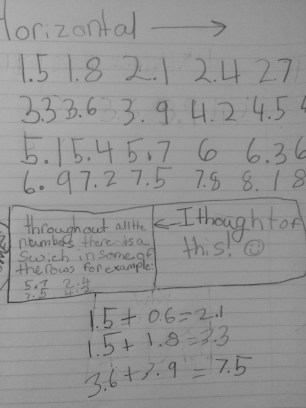 Horizontal →
1.5 1.8 2.1 2.4 2.7
3.3 3.6 3.9 4.2 4.5
5.1 5.4 5.7 6 6.3 6
6.9 7.2 7.5 7.8 8.1 8
throughout all the
numbers there is a
swich in some of
the rows for example:
5.7 2.4
7.5 4.2
← I thought of
this! ☺
1.5 + 0.6 = 2.1
1.5 + 1.8 = 3.3
3.6 + 3.9 = 7.5